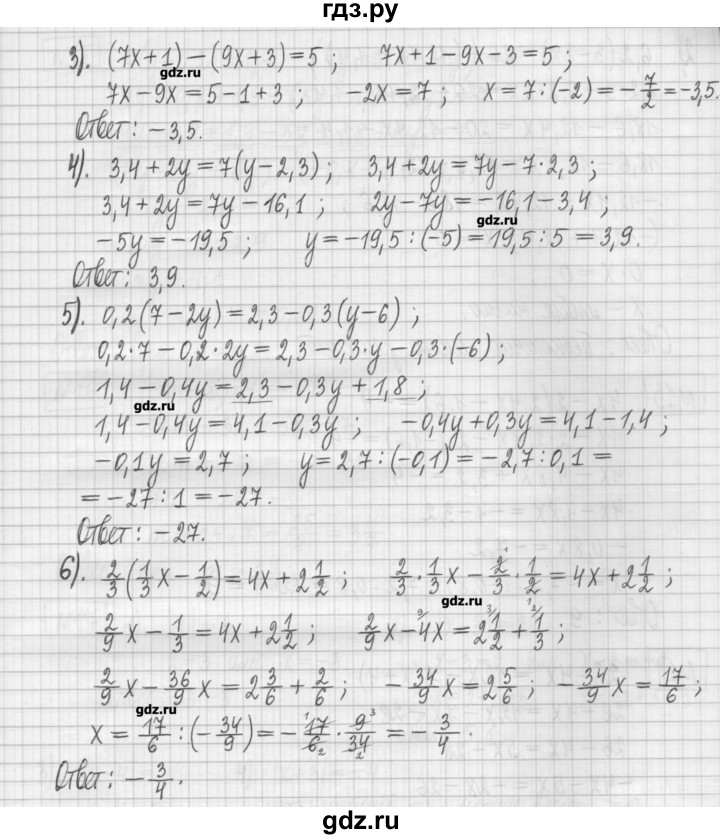 гдз.ру
3). (7x+1)−(9x+3)=5 ; 7x+1−9x−3=5 ;
gdz.ru
7x−9x=5−1+3 ; −2x=7 ; x=7:(−2)=−7/2=−3,5.
Ответ: −3,5.
4). 3,4+2y=7(y−2,3) ; 3,4+2y=7y−7·2,3 ;
3,4+2y=7y−16,1 ; 2y−7y=−16,1−3,4 ;
gdz.ru
−5y=−19,5 ; y=−19,5:(−5)=19,5:5=3,9.
Ответ: 3,9.
5). 0,2(7−2y)=2,3−0,3(y−6) ;
0,2·7−0,2·2y=2,3−0,3·y−0,3·(−6) ;
1,4−0,4y=2,3−0,3y+1,8 ;
gdz.ru
1,4−0,4y=4,1−0,3y ; −0,4y+0,3y=4,1−1,4 ;
−0,1y=2,7 ; y=2,7:(−0,1)=−2,7:0,1=
=−27:1=−27.
Ответ: −27.
6). 2/3(1/3x−1/2)=4x+2 1/2 ; 2/3·1/3x−2/3·1/2=4x+2 1/2 ;
gdz.ru
2/9x−1/3=4x+2 1/2 ; 2/9x−4x=2 1/2+1/3 ;
2/9x−36/9x=2 3/6+2/6 ; −34/9x=2 5/6 ; −34/9x=17/6 ;
gdz.ru
x=17/6:(−34/9)=−17/6·9/34=−3/4.
Ответ: −3/4.
gdz.ru